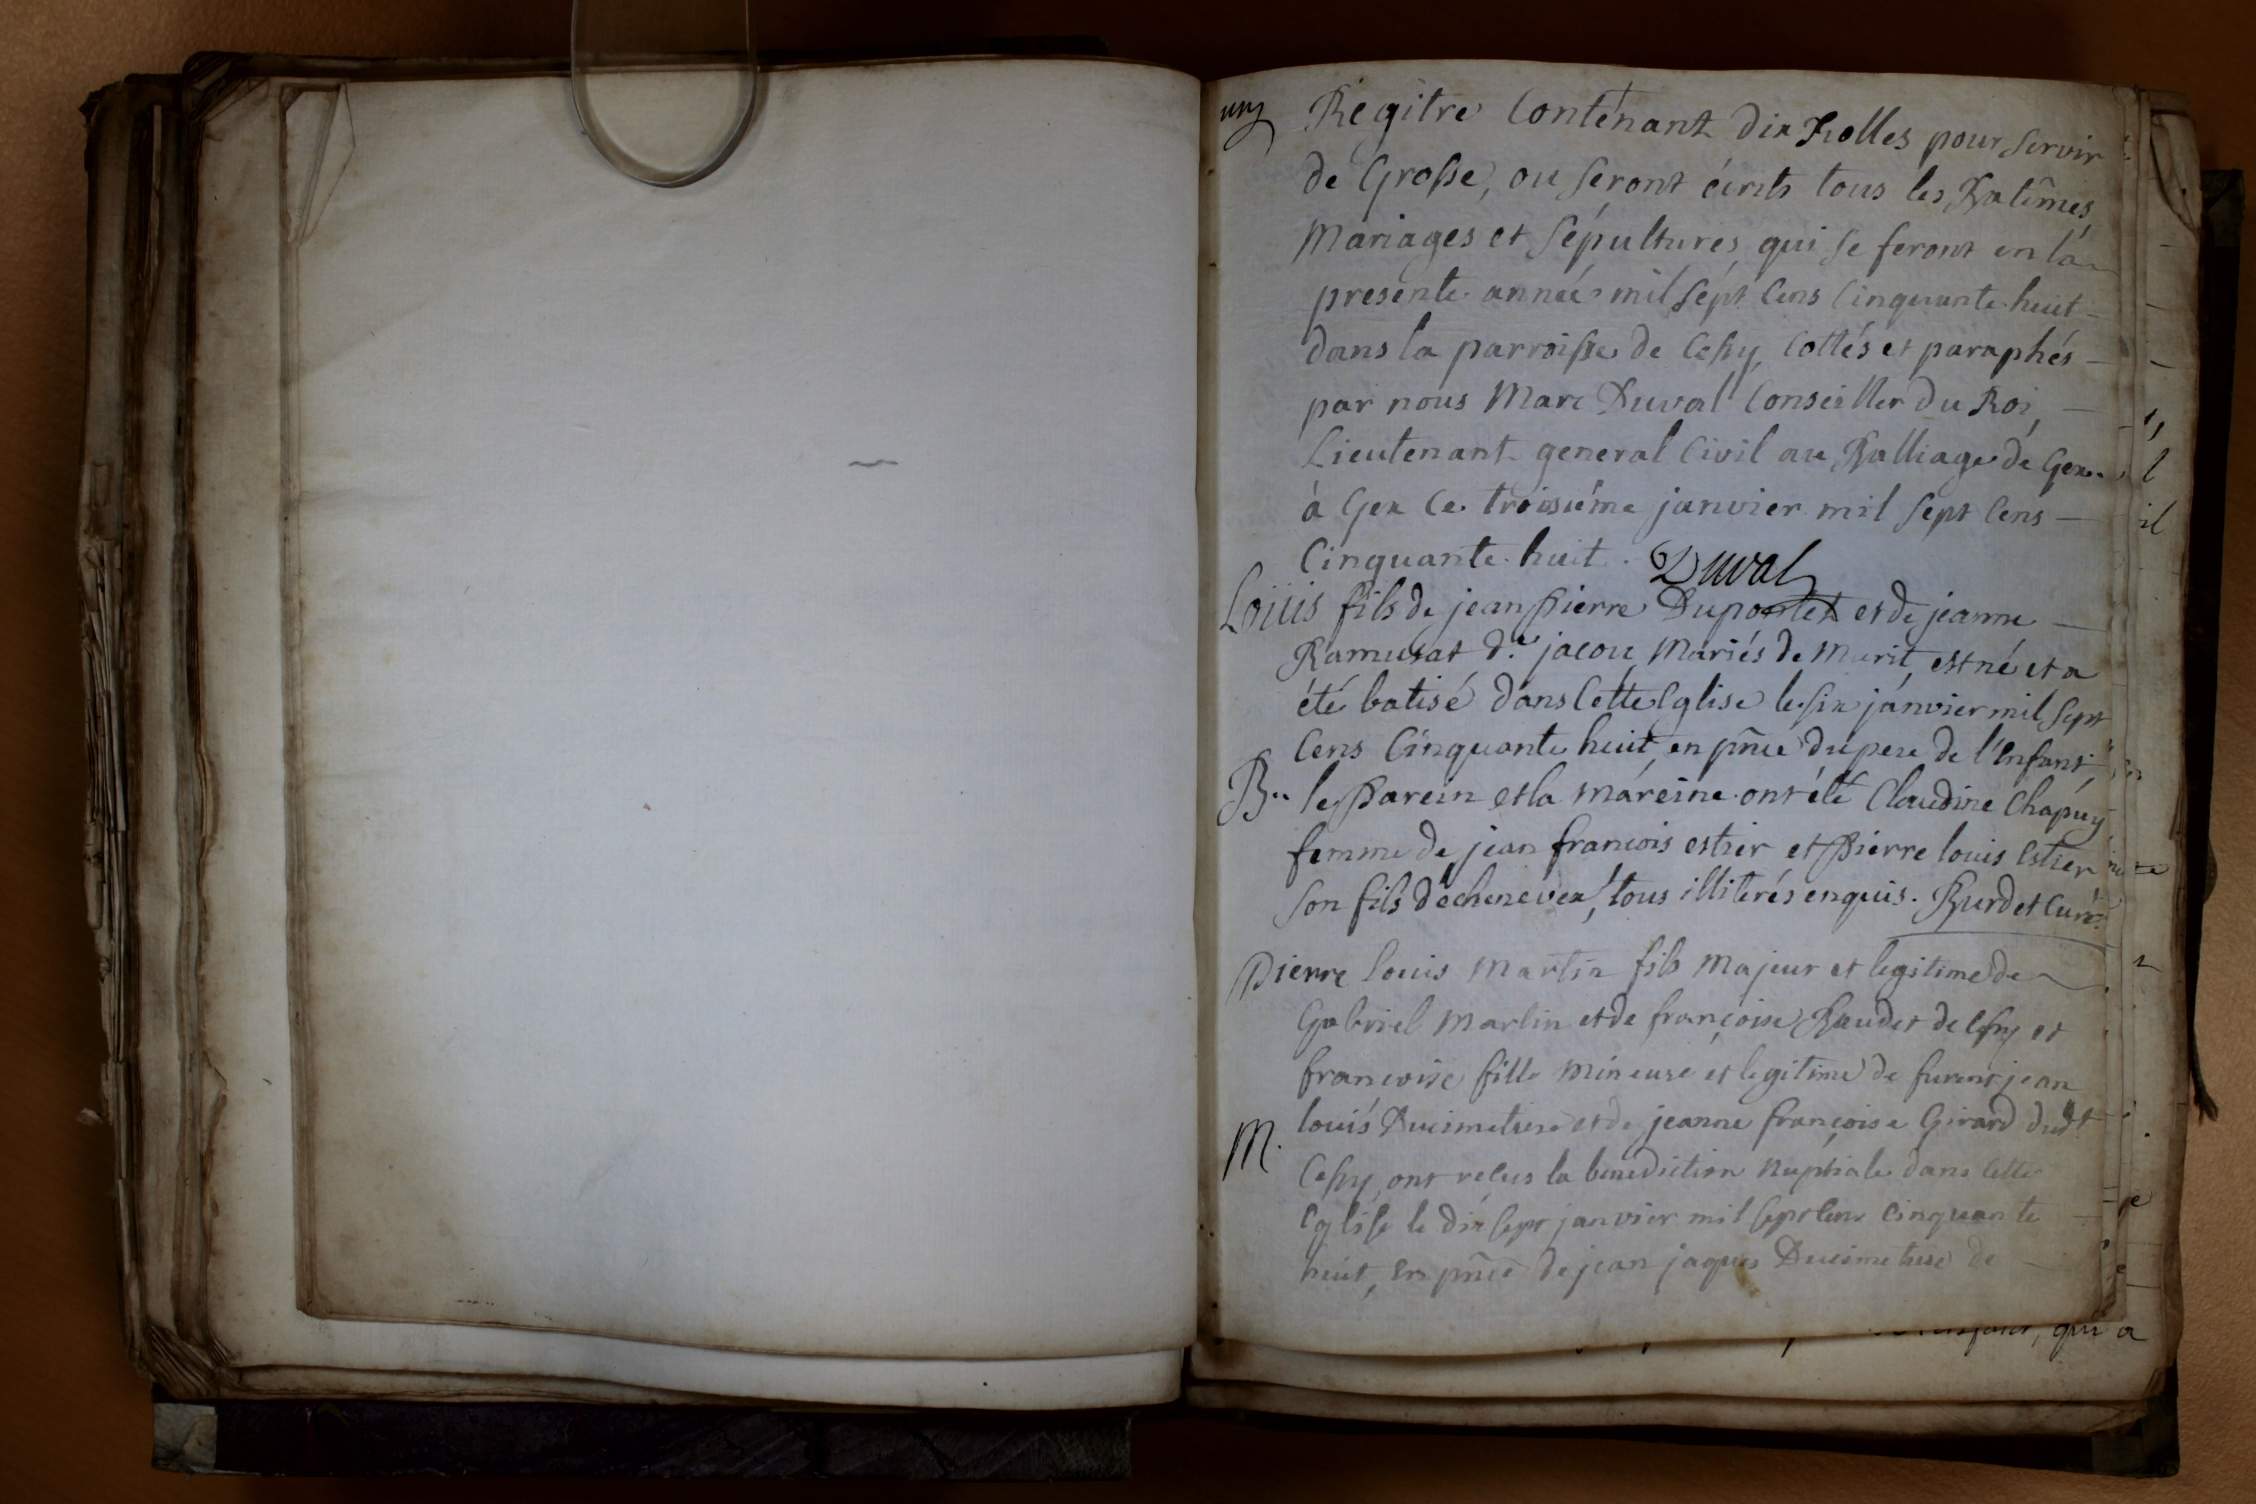 un
Regitre Contenant dix Rolles pour servir
de Grosse, ou seront écrits tous les Batêmes,
Mariages et Sépultures qui se feront en la
presente année mil sept Cens Cinquante huit
dans la parroisse de Cessy, Cottés et paraphés
par nous Marc Duval Conseiller du Roi,
Lieutenant general Civil au Balliage de Gex.
à Gex Ce troisiéme janvier mil sept Cens
Cinquante huit. Duval
Loüis fils de jean Pierre Duponlet et de jeanne
Ramusat d.t jacou Mariés de Murit, est né et a
été batisé dans Cette Eglise le six janvier mil sept
Cens Cinquante huit, en pñce du pere de l'Enfant;
B.. le Parein et la máreine ont été Claudine Chapuy
femme de jean francois estier et Pierre louis estier
son fils d'echenevex, tous illiterés enquis. Burdet Curé.
Pierre louis Martin fils Majeur et legitime de
Gabriel Martin et de françoise Baudet de Cessy et
francoise fille Mineure et legitime de furent jean
louis Ducimetiere et de jeanne françoise Girard dudt
M.
Cessy, ont reçus la benediction Nuptiale dans Cette
Eglise le dix sept janvier mil sept Cens Cinquante
huit, en pñce de jean jaques Ducimetiere de
qui a